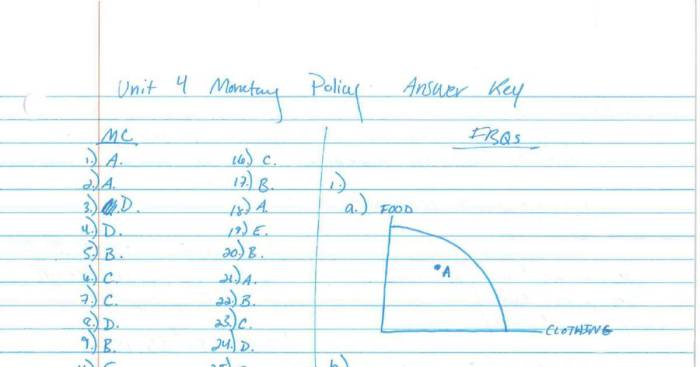 Unit 4 Monetary Policy Answer Key
MC
1.) A.
2.) A.
3.) D.
4.) D.
5.) B.
6.) C.
7.) C.
8.) D.
9.) B.
16.) C.
17.) B.
18.) A.
19.) E.
20.) B.
21.) A.
22.) B.
23.) C.
24.) D.
FBQs
1.)
a.) FOOD
A
CLOTHING
b.)